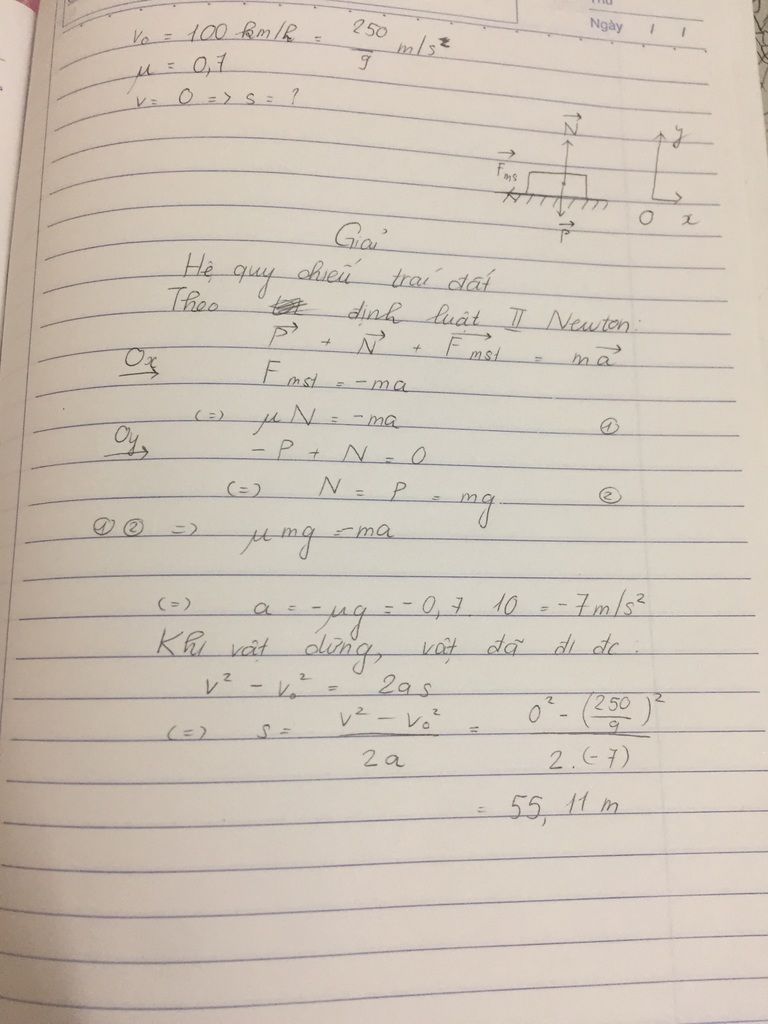 Thứ
Ngày / /
v₀ = 100 km/h = 250/9 m/s²
μ = 0,7
v = 0 => s = ?
N y
Fms
O x
P
Giải
Hệ quy chiếu trái đất
Theo định luật II Newton:
P + N + Fmst = ma
Ox Fmst = -ma
(=) μN = -ma ①
Oy - P + N = 0
(=) N = P = mg ②
① ② => μmg = -ma
(=) a = -μg = -0,7. 10 = -7m/s²
Khi vật dừng, vật đã đi đc:
v² - v₀² = 2as
(=) s = (v² - v₀²)/2a = (0² - (250/9)²)/(2.(-7))
= 55,11 m